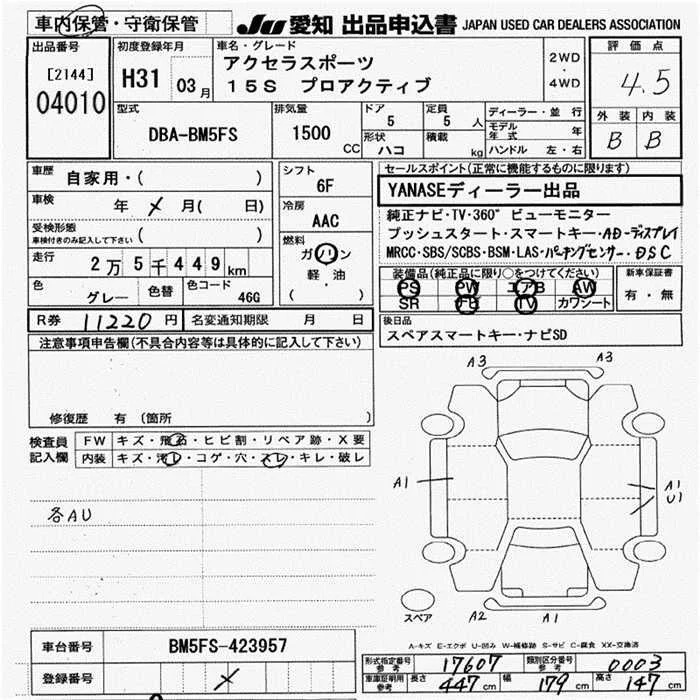 車内保管・守衛保管
JU 愛知 出品申込書 JAPAN USED CAR DEALERS ASSOCIATION
出品番号
[2144]
04010
初度登録年月
H31 03月
車名・グレード
アクセラスポーツ
15S プロアクティブ
2WD
・
4WD
評価点
4.5
外装 内装
B B
型式
DBA-BM5FS
排気量
1500 CC
ドア
5
定員
5 人
形状
ハコ
積載
kg
ディーラー・並行
モデル年式 年
ハンドル 左・右
車歴
自家用・( )
車検
年 月( 日)
受検形態
車検付きのみ記入して下さい ( )
走行
2万5千449km
色
グレー
色替
色コード
46G
シフト
6F
冷房
AAC
燃料
ガソリン
軽・油
( )
セールスポイント(正常に機能するものに限ります)
YANASEディーラー出品
純正ナビ・TV・360°ビューモニター
プッシュスタート・スマートキー・AD-ディスプレイ
MRCC・SBS/SCBS・BSM・LAS・パーキングセンサー・DSC
装備品(純正品に限り○をつけてください)
PS PW エアB AW
SR ナビ TV カワシート
新車保証書
有・無
R券 11220円
名変通知期限 月 日
後日品
スペアスマートキー・ナビSD
注意事項申告欄(不具合内容等は具体的に記入して下さい)
修復歴 有(箇所 )
検査員
記入欄
FW キズ・飛石・ヒビ割・リペア跡・X要
内装 キズ・汚レ・コゲ・穴・スレ・キレ・破レ
各AU
A3 A3
A1
A1
U1
スペア
A2 A1
A-キズ E-エクボ U-凹み W-補修跡 S-サビ C-腐食 XX-交換済
車台番号
BM5FS-423957
登録番号
形式指定番号
参考
17607
類別区分番号
参考
0003
車庫証明用
参考
長さ 447cm
幅 179cm
高さ 147cm